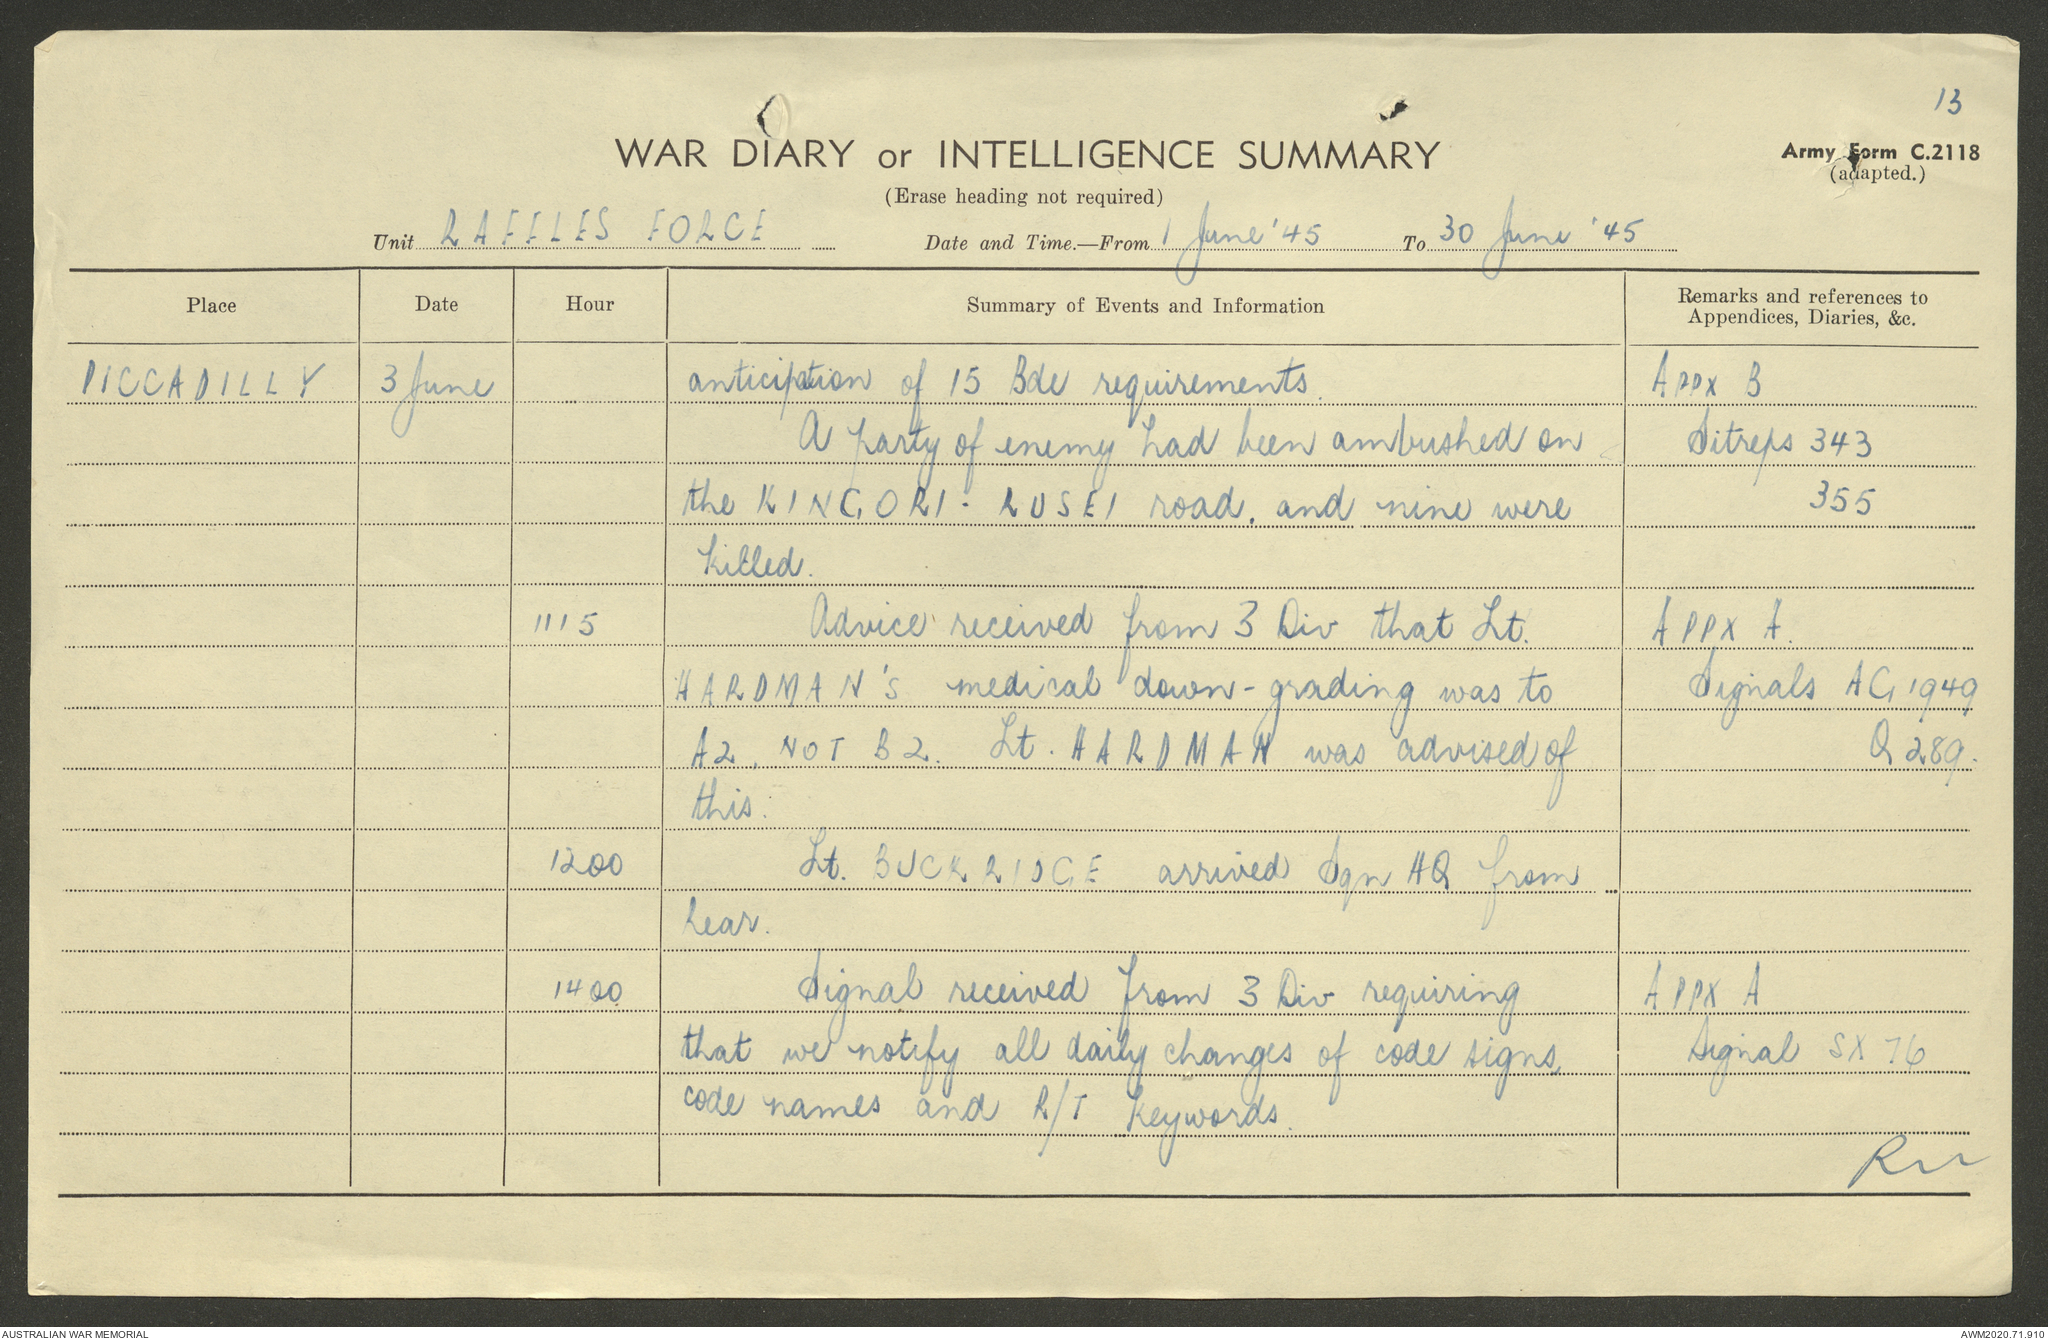 13
WAR DIARY or INTELLIGENCE SUMMARY
Army Form C.2118
(adapted.)
(Erase heading not required)
Unit RAFFLES FORCE Date and Time.—From 1 June '45 To 30 June '45
Place Date Hour Summary of Events and Information Remarks and references to Appendices, Diaries, &c.
PICCADILLY 3 June anticipation of 15 Bde requirements. APPX B
A party of enemy had been ambushed on Sitreps 343
the KINGORI - RUSEI road, and nine were 355
killed.
1115 Advice received from 3 Div that Lt. APPX A.
HARDMAN'S medical down-grading was to Signals AG 1949
A2, NOT B2. Lt. HARDMAN was advised of Q 289.
this.
1200 Lt. BUCKRIDGE arrived Sqn HQ from
Rear.
1400 Signal received from 3 Div requiring APPX A
that we notify all daily changes of code signs, Signal SX 76
code names and R/T keywords.
AUSTRALIAN WAR MEMORIAL
AWM2020.71.910